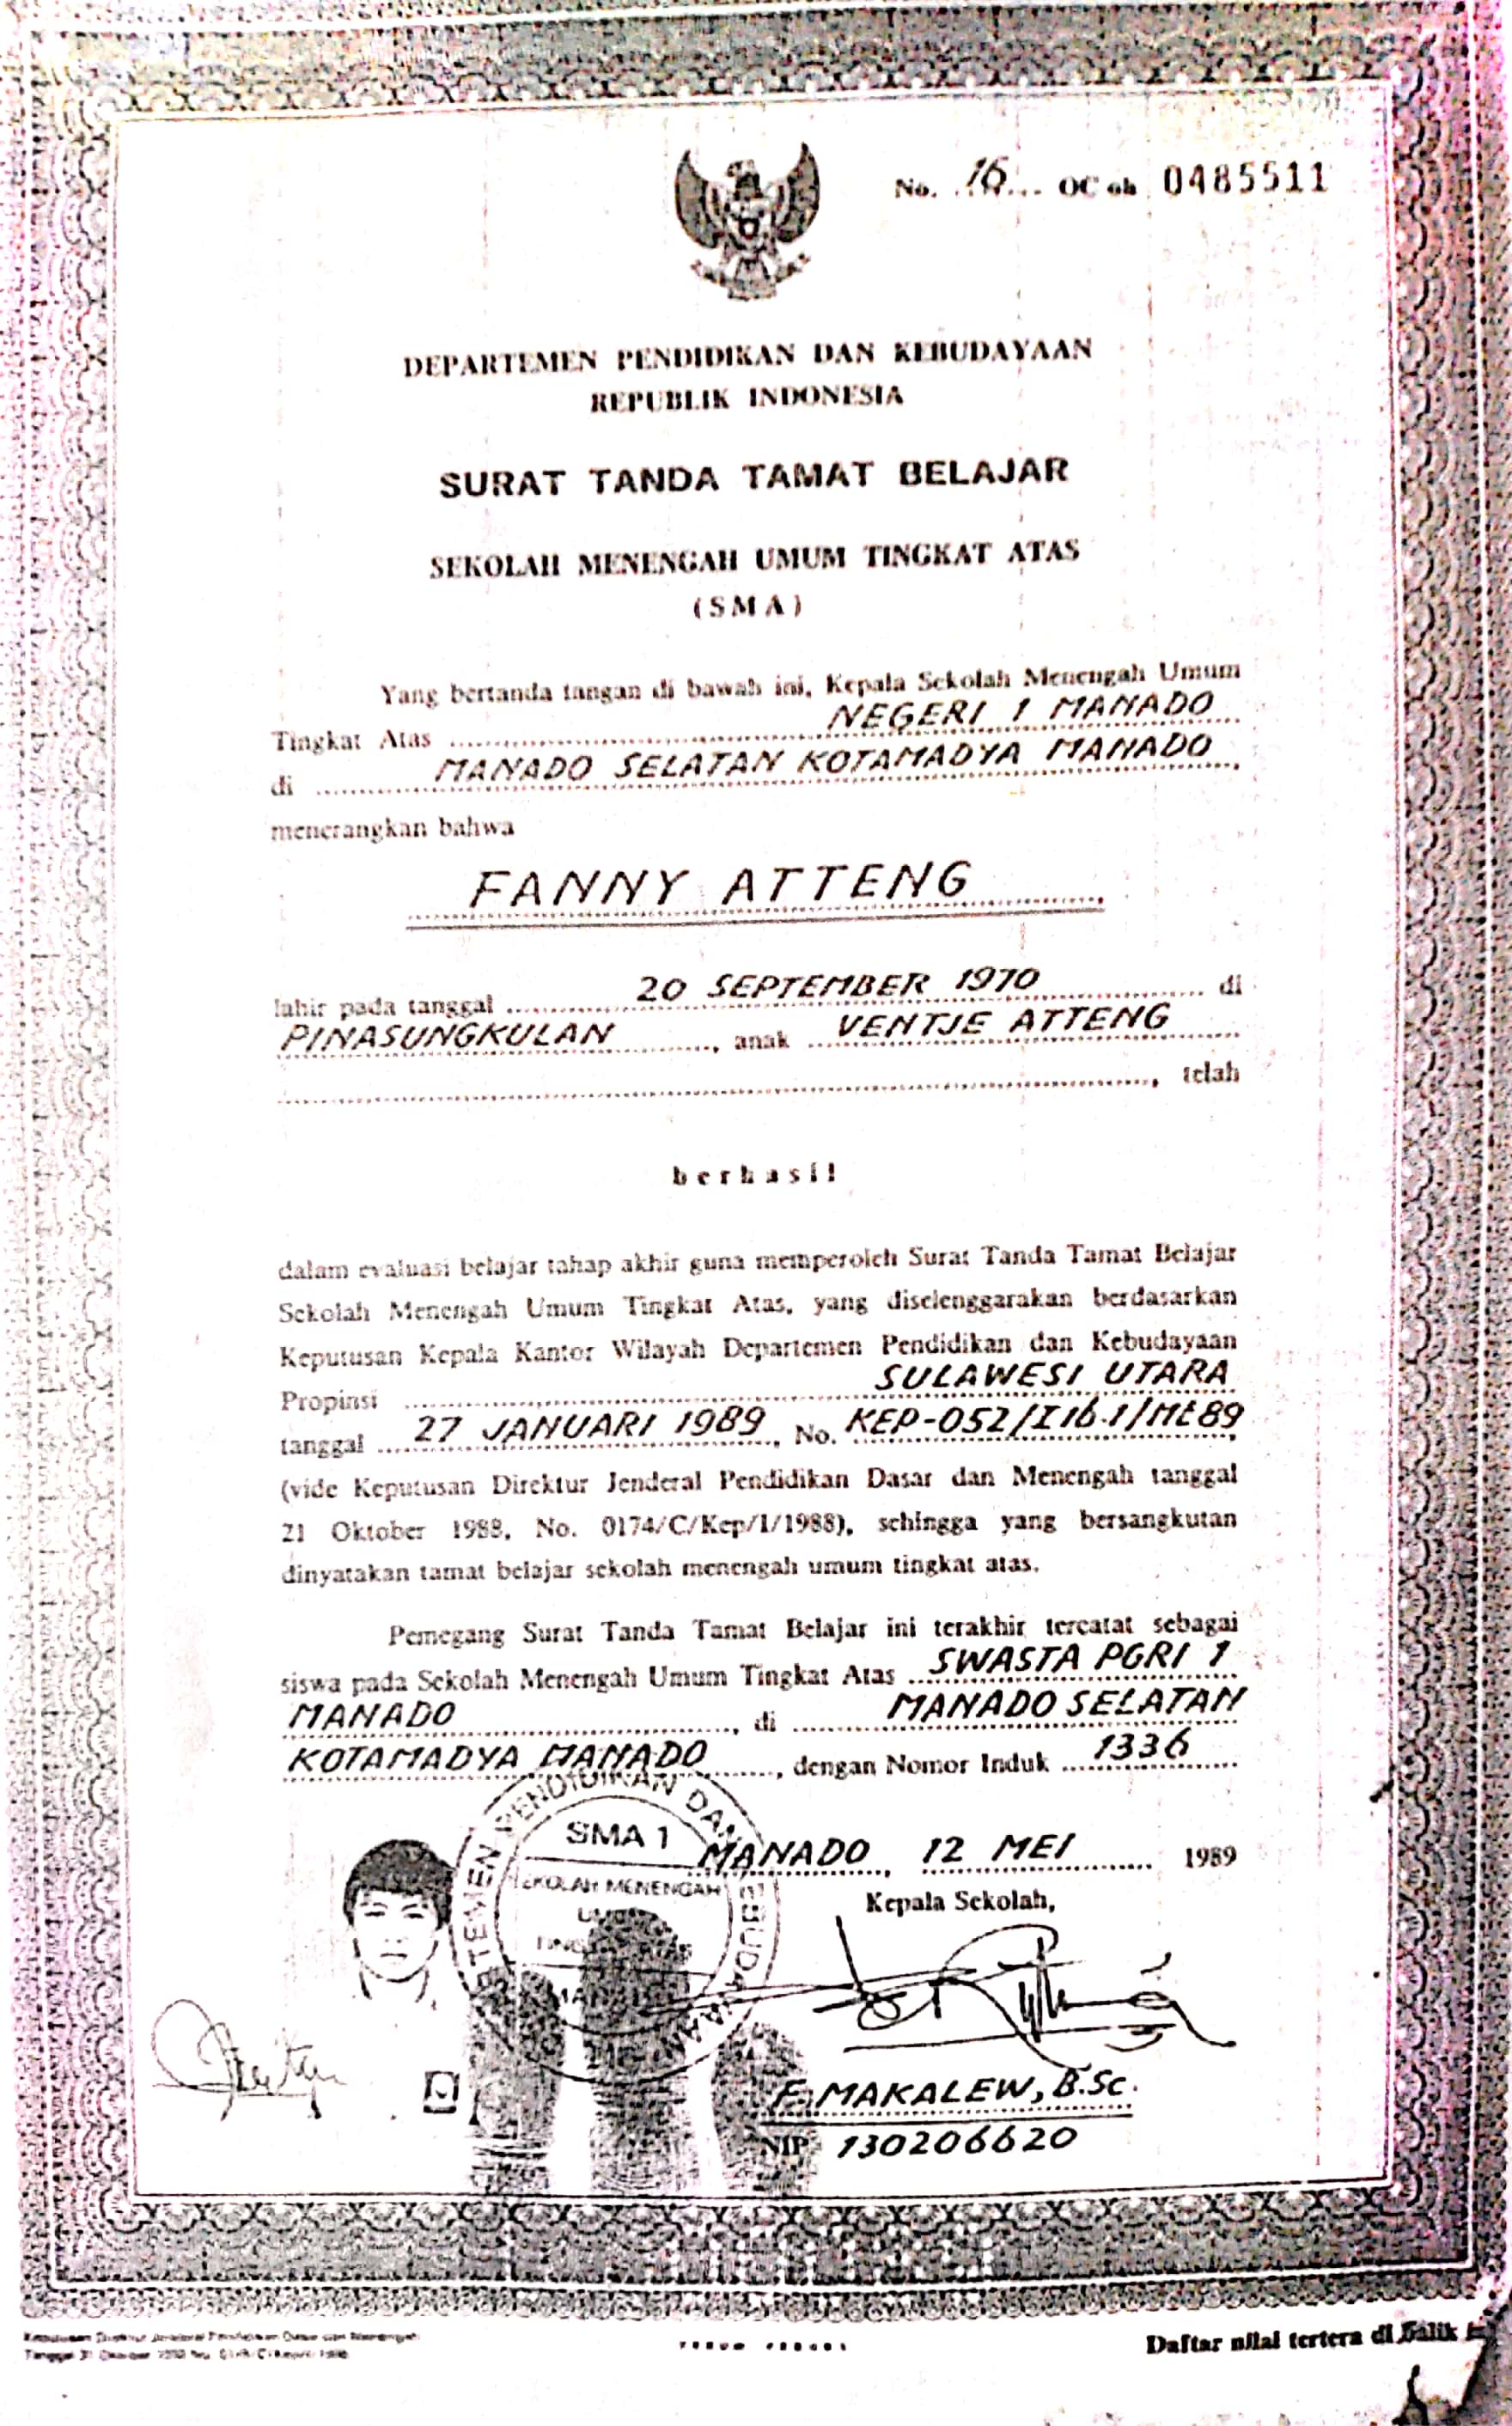 No. 16 OC oh 0485511
DEPARTEMEN PENDIDIKAN DAN KEBUDAYAAN
REPUBLIK INDONESIA
SURAT TANDA TAMAT BELAJAR
SEKOLAH MENENGAH UMUM TINGKAT ATAS
(SMA)
Yang bertanda tangan di bawah ini, Kepala Sekolah Menengah Umum
Tingkat Atas NEGERI 1 MANADO
di MANADO SELATAN KOTAMADYA MANADO,
menerangkan bahwa
FANNY ATTENG,
lahir pada tanggal 20 SEPTEMBER 1970 di
PINASUNGKULAN, anak VENTJE ATTENG
, telah
berhasil
dalam evaluasi belajar tahap akhir guna memperoleh Surat Tanda Tamat Belajar
Sekolah Menengah Umum Tingkat Atas, yang diselenggarakan berdasarkan
Keputusan Kepala Kantor Wilayah Departemen Pendidikan dan Kebudayaan
Propinsi SULAWESI UTARA
tanggal 27 JANUARI 1989, No. KEP-052/I16.1/Mt89,
(vide Keputusan Direktur Jenderal Pendidikan Dasar dan Menengah tanggal
21 Oktober 1988, No. 0174/C/Kep/I/1988), sehingga yang bersangkutan
dinyatakan tamat belajar sekolah menengah umum tingkat atas.
Pemegang Surat Tanda Tamat Belajar ini terakhir tercatat sebagai
siswa pada Sekolah Menengah Umum Tingkat Atas SWASTA PGRI 1
MANADO, di MANADO SELATAN
KOTAMADYA MANADO, dengan Nomor Induk 1336
SMA 1
SEKOLAH MENENGAH
MANADO, 12 MEI 1989
Kepala Sekolah,
F. MAKALEW, B.Sc.
NIP. 130206620
Daftar nilai tertera di balik